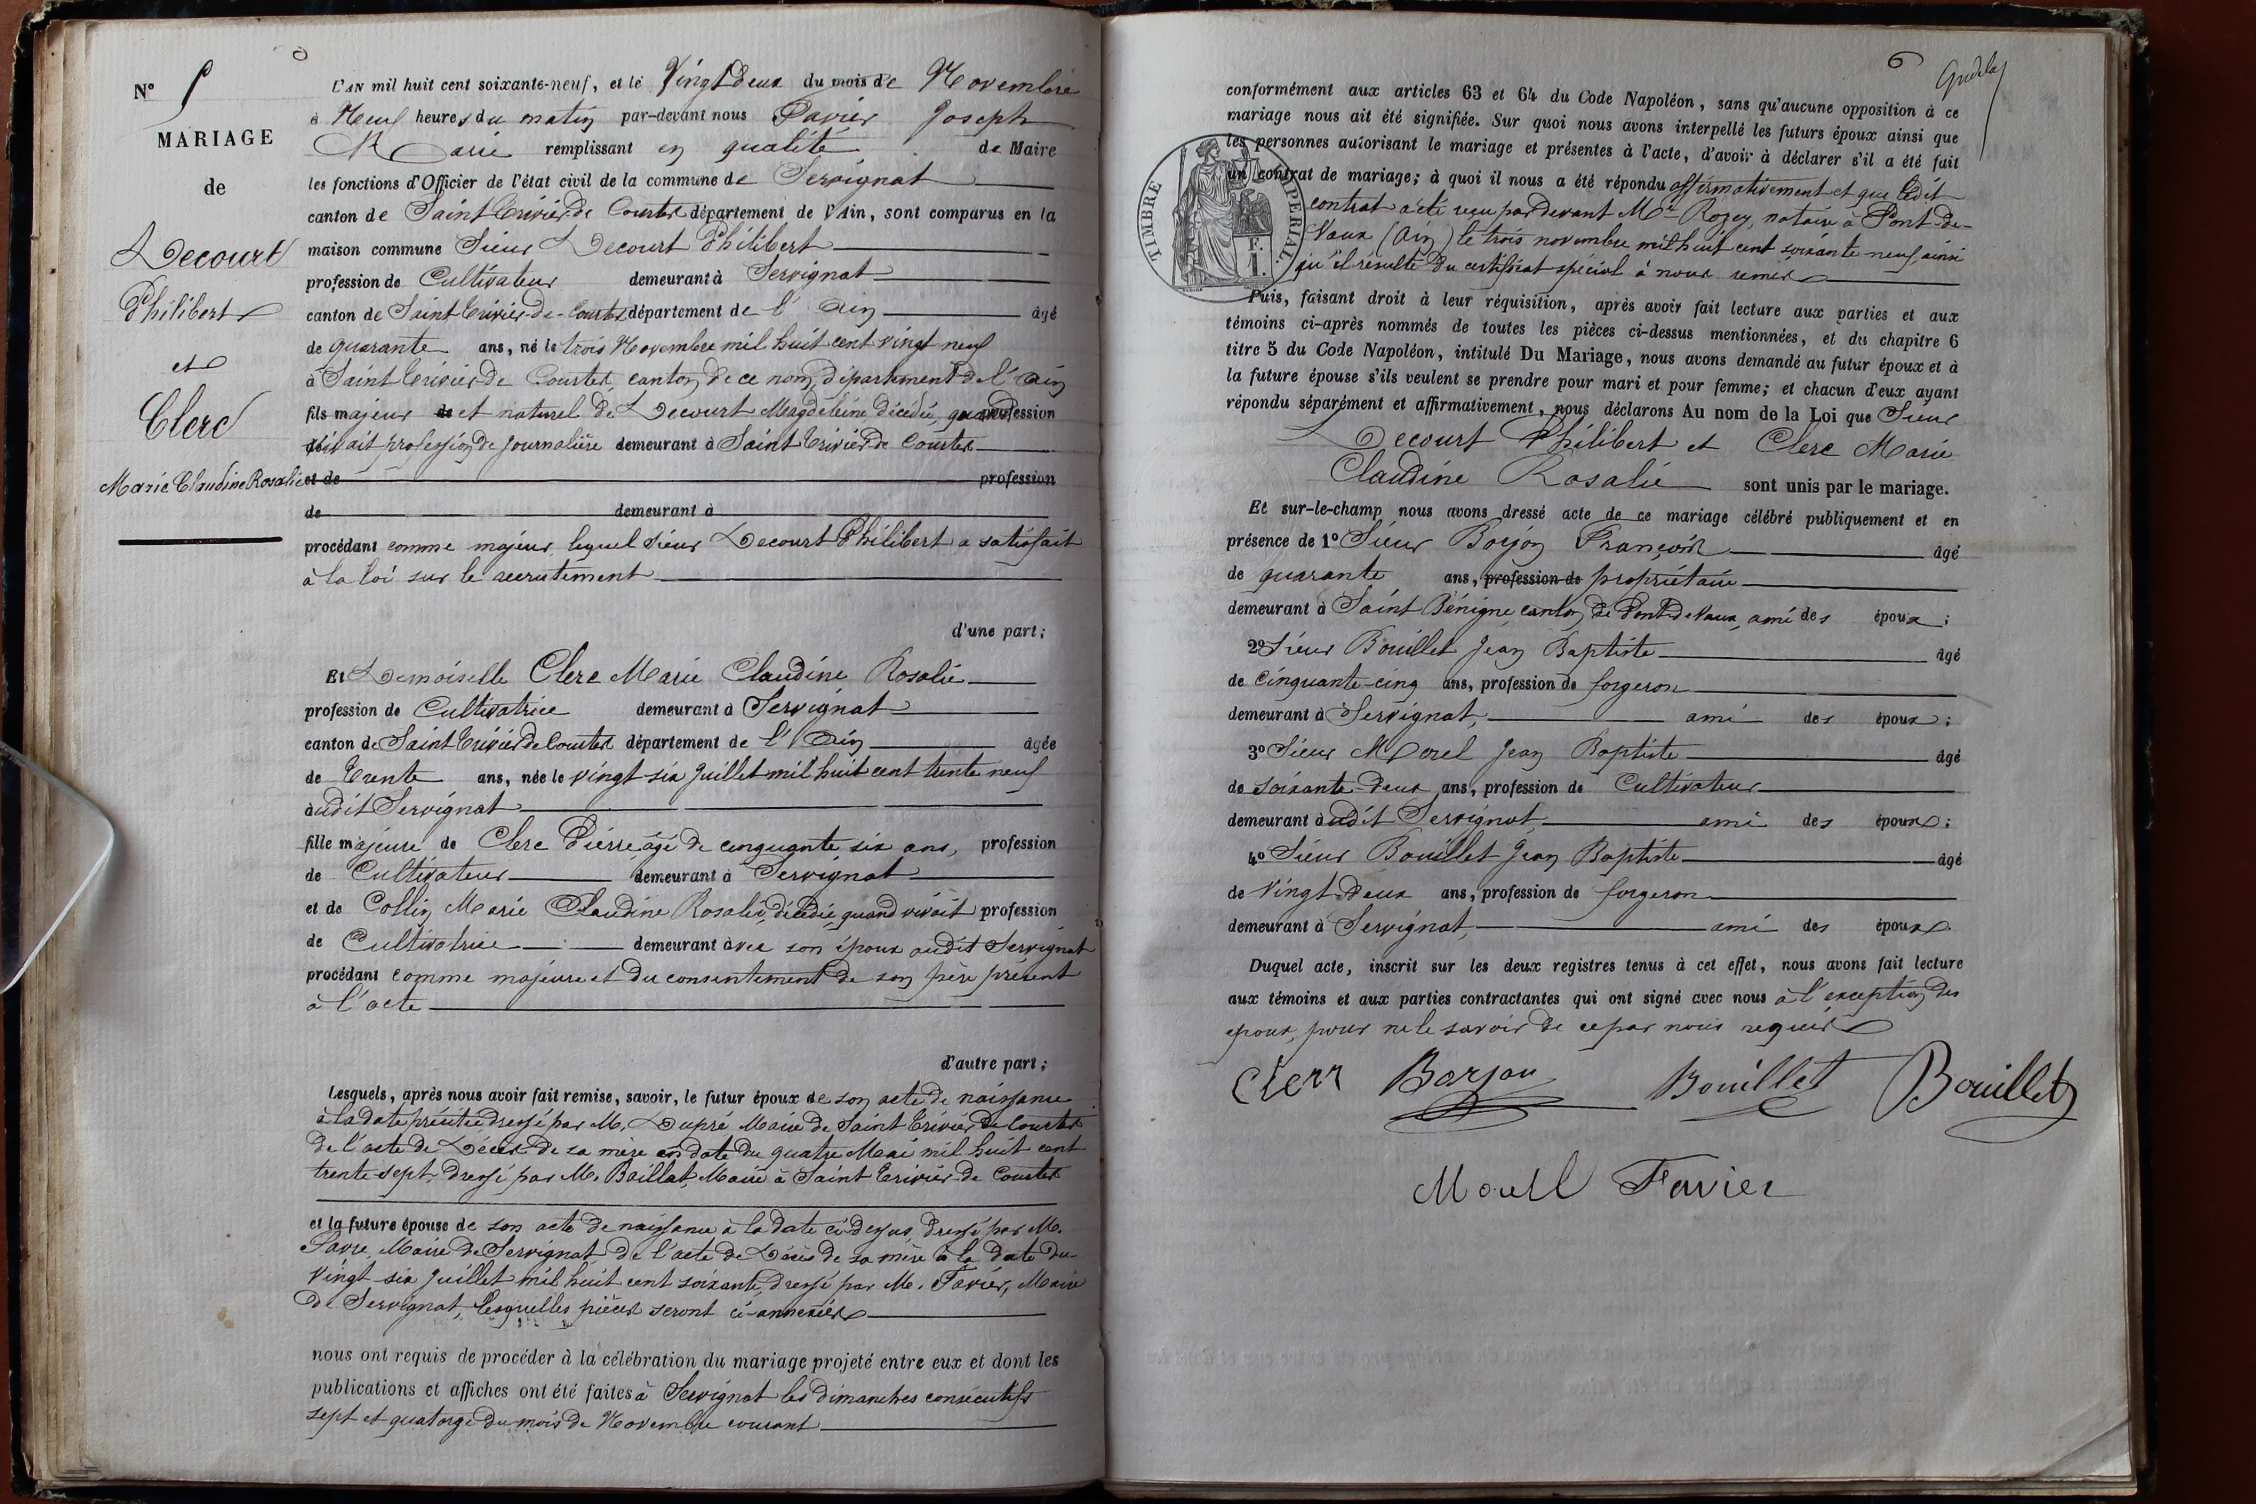 N° 5
MARIAGE
de
Decourt
Philibert
et
Clerc
Marie Claudine Rosalie
L'AN mil huit cent soixante-neuf, et le Vingt deux du mois de Novembre
à Neuf heures du matin par-devant nous Favier Joseph
Marie remplissant en qualité de Maire
les fonctions d'Officier de l'état civil de la commune de Servignat
canton de Saint Trivier de Courtes département de l'Ain, sont comparus en la
maison commune Sieur Decourt Philibert
profession de Cultivateur demeurant à Servignat
canton de Saint Trivier-de-Courtes département de l'Ain âgé
de quarante ans, né le trois Novembre mil huit cent vingt neuf
à Saint Trivier de Courtes, canton de ce nom, département de l'Ain
fils majeur de et naturel de Decourt Magdeleine décédée, quand profession
de vivait profession de journalière demeurant à Saint Trivier de Courtes
et de profession
de demeurant à
procédant comme majeur, lequel sieur Decourt Philibert a satisfait
à la loi sur le recrutement
d'une part;
Et Demoiselle Clerc Marie Claudine Rosalie
profession de Cultivatrice demeurant à Servignat
canton de Saint Trivier de Courtes département de l'Ain âgée
de Trente ans, née le vingt six Juillet mil huit cent trente neuf
audit Servignat
fille majeure de Clerc Pierre âgé de cinquante six ans, profession
de Cultivateur demeurant à Servignat
et de Collin Marie Claudine Rosalie, décédée, quand vivait profession
de Cultivatrice demeurant avec son époux audit Servignat
procédant comme majeure et du consentement de son père présent
à l'acte
d'autre part;
Lesquels, après nous avoir fait remise, savoir, le futur époux de son acte de naissance
à la date précitée dressé par M. Dupré Maire de Saint Trivier de Courtes
de l'acte de Décès de sa mère en date du quatre Mai mil huit cent
trente sept, dressé par M. Baillat, Maire à Saint Trivier-de Courtes
et la future épouse de son acte de naissance à la date ci-dessus, dressé par M.
Favre, Maire de Servignat, de l'acte de Décès de sa mère à la date du
Vingt-six Juillet mil huit cent soixante, dressé par M. Favier, Maire
de Servignat, lesquelles pièces seront ci-annexées
nous ont requis de procéder à la célébration du mariage projeté entre eux et dont les
publications et affiches ont été faites à Servignat les dimanches consécutifs
sept et quatorze du mois de Novembre courant
6
conformément aux articles 63 et 64 du Code Napoléon, sans qu'aucune opposition à ce
mariage nous ait été signifiée. Sur quoi nous avons interpellé les futurs époux ainsi que
les personnes autorisant le mariage et présentes à l'acte, d'avoir à déclarer s'il a été fait
un contrat de mariage; à quoi il nous a été répondu affirmativement et que ledit
contrat a été reçu par devant Me Rozey, notaire à Pont-de-
Vaux (Ain) le trois novembre mil huit cent soixante neuf, ainsi
qu'il résulte du certificat spécial à nous remis
TIMBRE IMPERIAL.
Puis, faisant droit à leur réquisition, après avoir fait lecture aux parties et aux
témoins ci-après nommés de toutes les pièces ci-dessus mentionnées, et du chapitre 6
titre 5 du Code Napoléon, intitulé Du Mariage, nous avons demandé au futur époux et à
la future épouse s'ils veulent se prendre pour mari et pour femme; et chacun d'eux ayant
répondu séparément et affirmativement, nous déclarons Au nom de la Loi que Sieur
Decourt Philibert et Clerc Marie
Claudine Rosalie sont unis par le mariage.
Et sur-le-champ nous avons dressé acte de ce mariage célébré publiquement et en
présence de 1° Sieur Borjon François âgé
de quarante ans, profession de propriétaire
demeurant à Saint Bénigne, canton de Pont-de-Vaux, ami des époux;
2° Sieur Bouillet Jean Baptiste âgé
de Cinquante-cinq ans, profession de forgeron
demeurant à Servignat, ami des époux;
3° Sieur Morel Jean Baptiste âgé
de soixante-deux ans, profession de Cultivateur
demeurant audit Servignat, ami des époux;
4° Sieur Bouillet Jean Baptiste âgé
de Vingt-deux ans, profession de forgeron
demeurant à Servignat, ami des époux
Duquel acte, inscrit sur les deux registres tenus à cet effet, nous avons fait lecture
aux témoins et aux parties contractantes qui ont signé avec nous à l'exception des
époux, pour ne le savoir de ce par nous requis
Clerc Borjon Bouillet Bouillet
Morel Favier